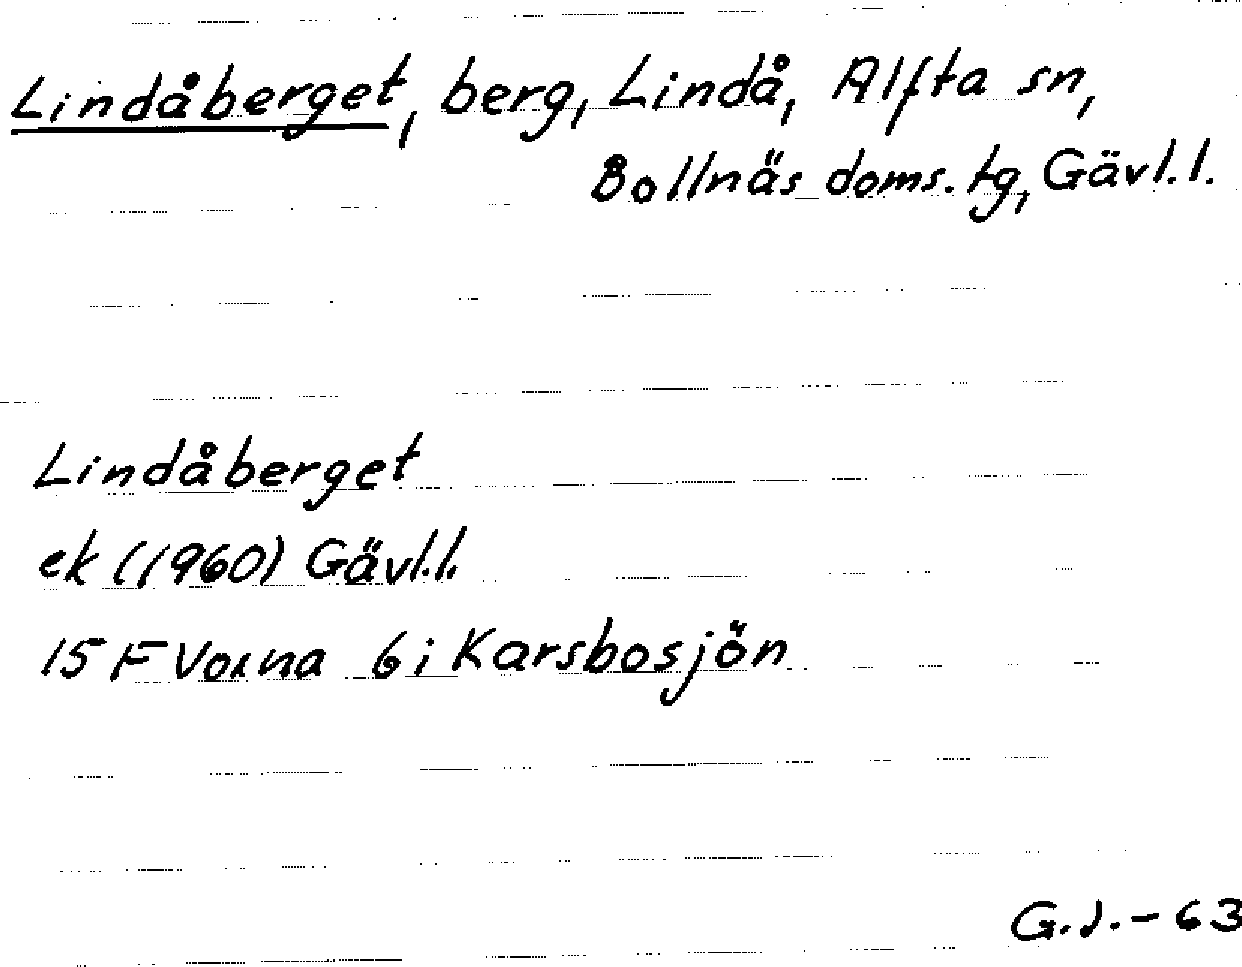 Lindåberget, berg, Lindå, Alfta sn,
Bollnäs doms. tg, Gävl. l.
Lindåberget
ek (1960) Gävl. l.
15 F Voxna 6 i Karsbosjön
G. J. - 63